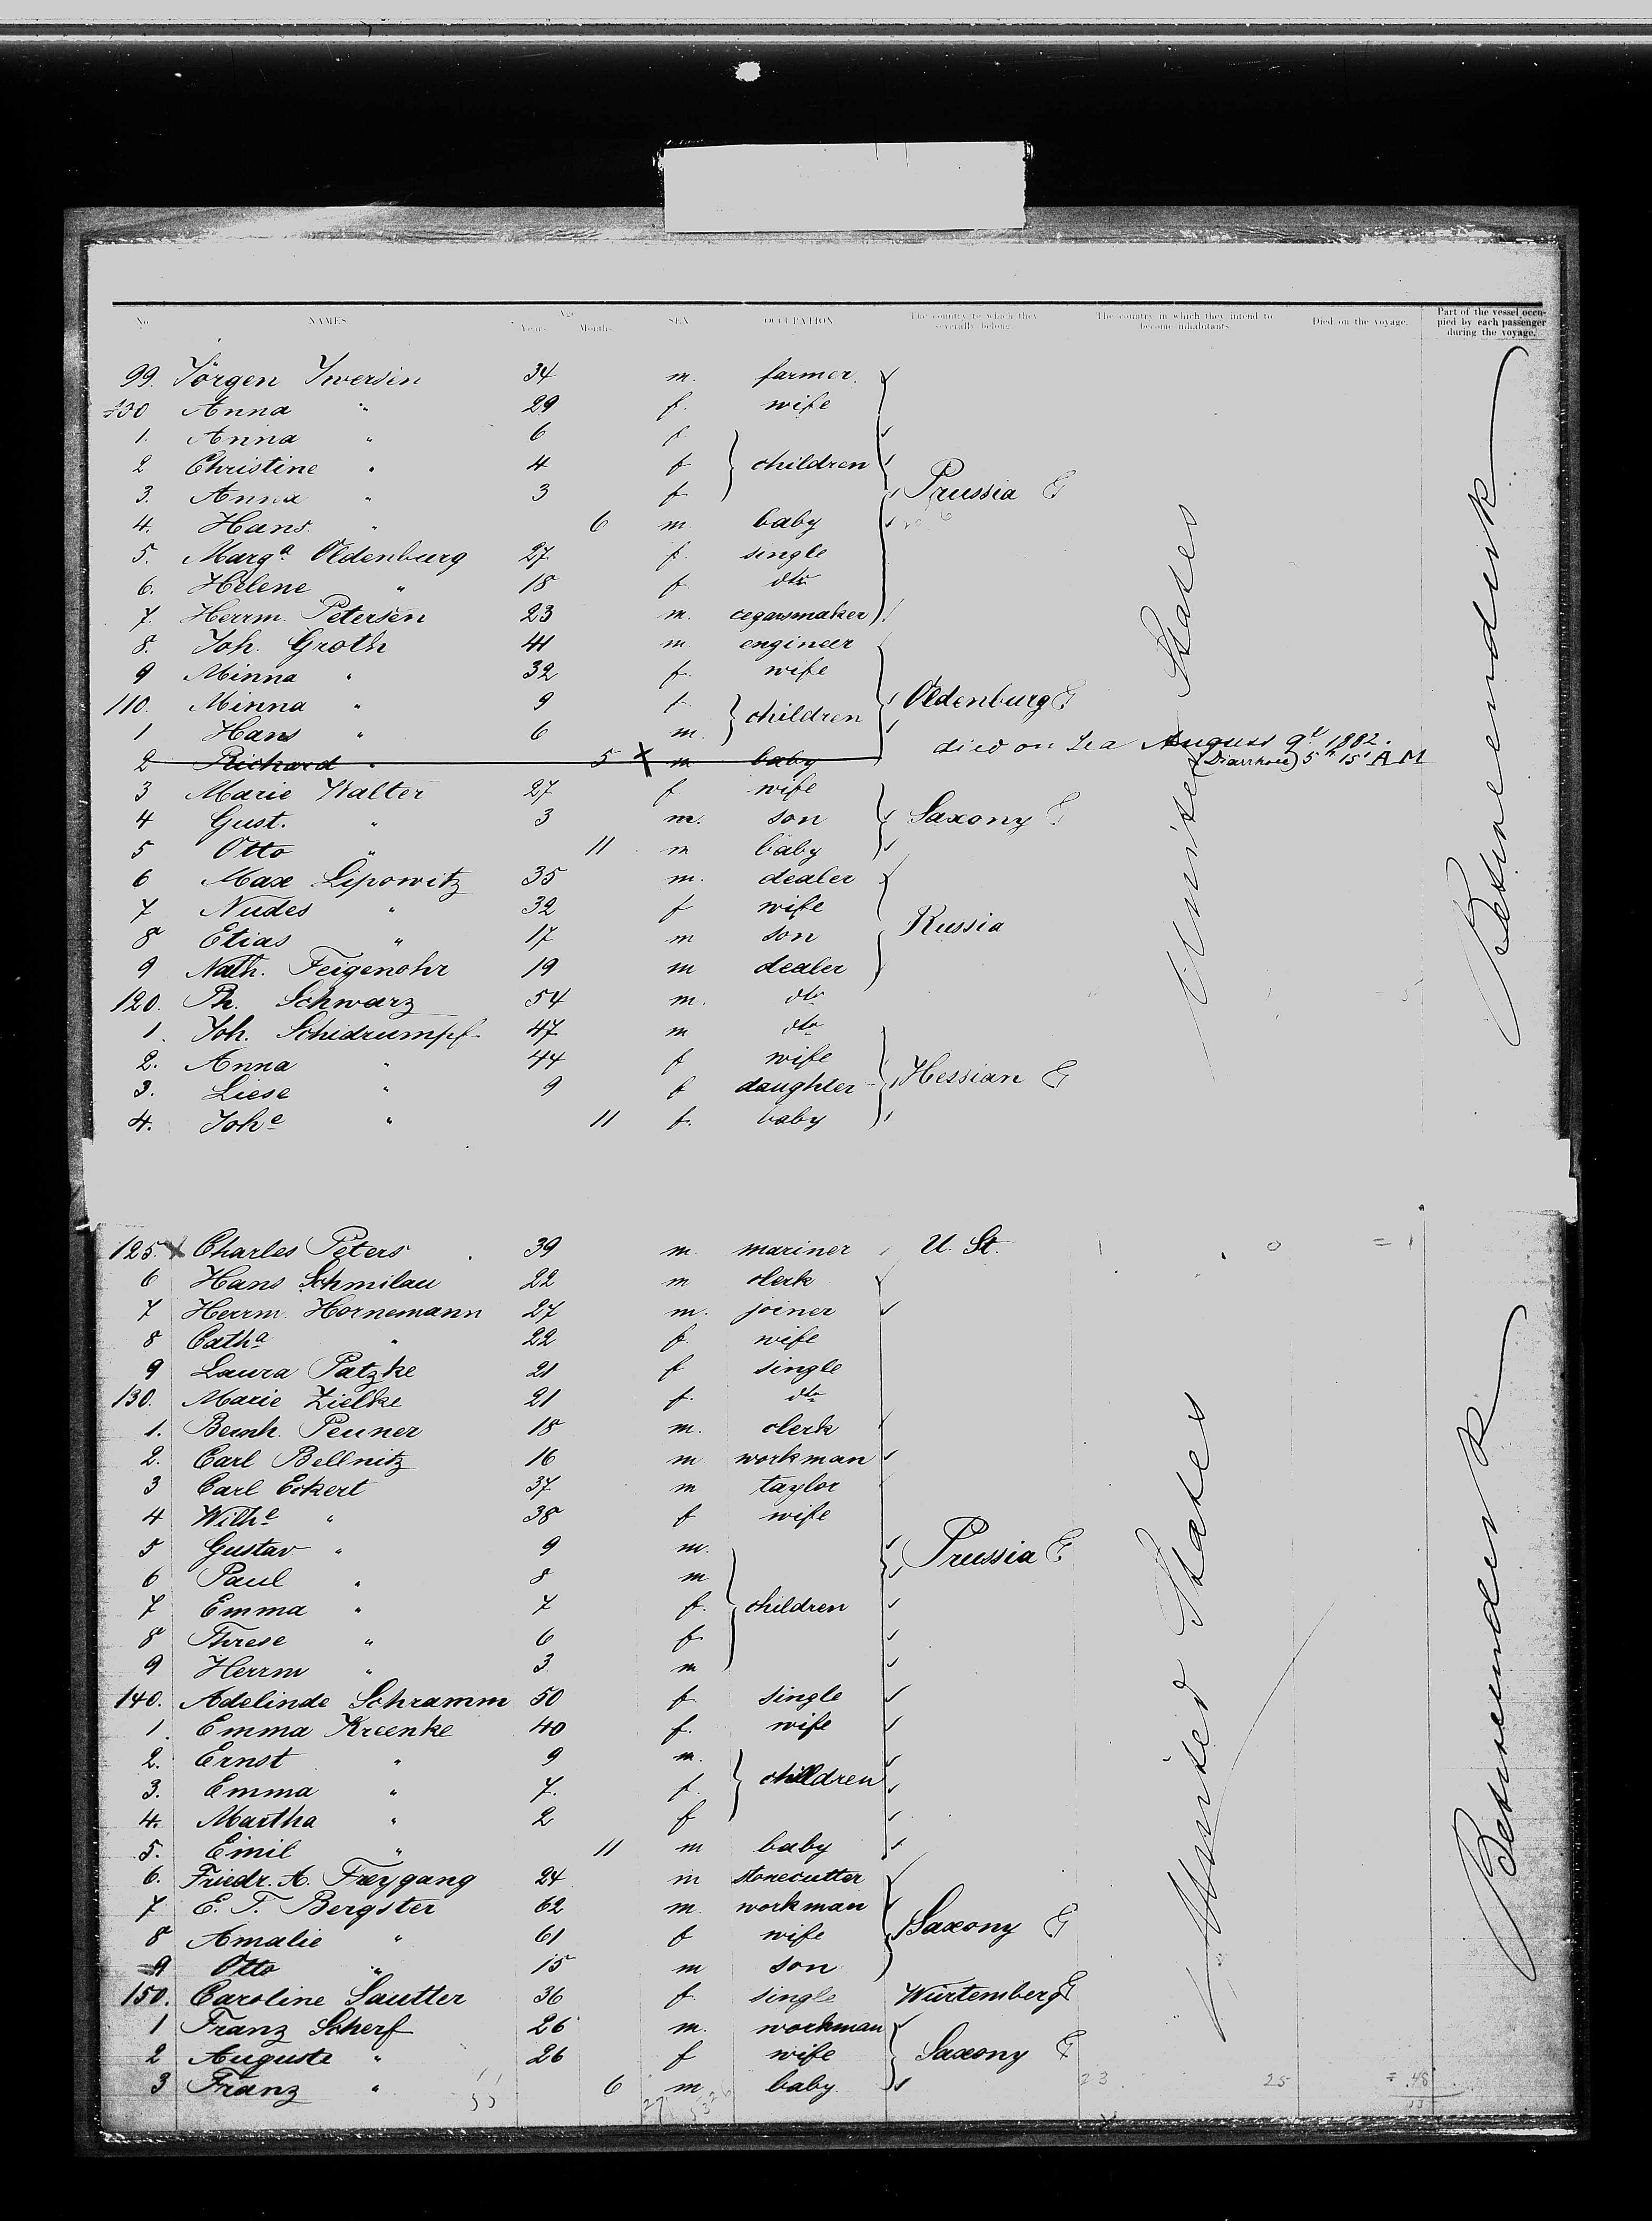 No. NAMES Age Years Months SEX. OCCUPATION The country to which they severally belong. The country in which they intend to become inhabitants. Died on the voyage. Part of the vessel occupied by each passenger during the voyage.
99. Jörgen Iwersen 34 m. farmer
100 Anna " 29 f. wife
1. Anna " 6 f.
2 Christine " 4 f children
3. Anna " 3 f Prussia G
4. Hans " 6 m baby
5. Marga. Oldenburg 27 f. single
6. Helene " 18 f dto
7. Herrm. Petersen 23 m. cegarsmaker
8. Joh. Groth 41 m engineer
9 Minna " 32 f. wife
110. Minna " 9 f children Oldenburg G
1 Hans " 6 m.
died on Sea August 9t. 1882.
2 Richard " 5 X m baby (Diarrhoea) 5h 15' A M
3 Marie Walter 27 f wife
4 Gust. " 3 m. son Saxony G
5 Otto " 11 m baby
6 Max Lipowitz 35 m. dealer
7 Nudes " 32 f wife Russia
8 Etias " 17 m son
9 Nath. Feigenohr 19 m dealer
120. Ph. Schwarz 54 m. dto
1. Joh. Schidrumpf 47 m dto
2. Anna " 44 f wife
3. Liese " 9 f daughter Hessian G
4. Johe " 11 f. baby
United States
125. X Charles Peters 39 m mariner U. St. 1 0 = 1
6 Hans Schmilau 22 m clerk
7 Herrm. Hornemann 27 m. joiner
8 Catha " 22 f. wife
9 Laura Patzke 21 f single
130. Marie Zielke 21 f. dto
1. Bernh. Peuner 18 m. clerk
2. Carl Bellnitz 16 m workman
3 Carl Eckert 37 m taylor
4 Wilhe " 38 f wife
5 Gustav " 9 m. Prussia G
6 Paul " 8 m
7 Emma " 7 f. children
8 Threse " 6 f
9 Herrm " 3 m
140. Adelinde Schramm 50 f single
1. Emma Kreenke 40 f. wife
2. Ernst " 9 m.
3. Emma " 7. f. children
4. Martha " 2 f
5. Emil " 11 m baby
6. Friedr. A. Freygang 24 m stonecutter
7 E. T. Bergster 62 m. workman
8 Amalie " 61 f wife Saxony G
9 Otto " 15 m son
150. Caroline Sautter 36 f. single Würtemberg G
1 Franz Scherf 26 m. workman
2 Auguste " 26 f wife Saxony G
3 Franz " 6 m baby 23 25 = 48
United States